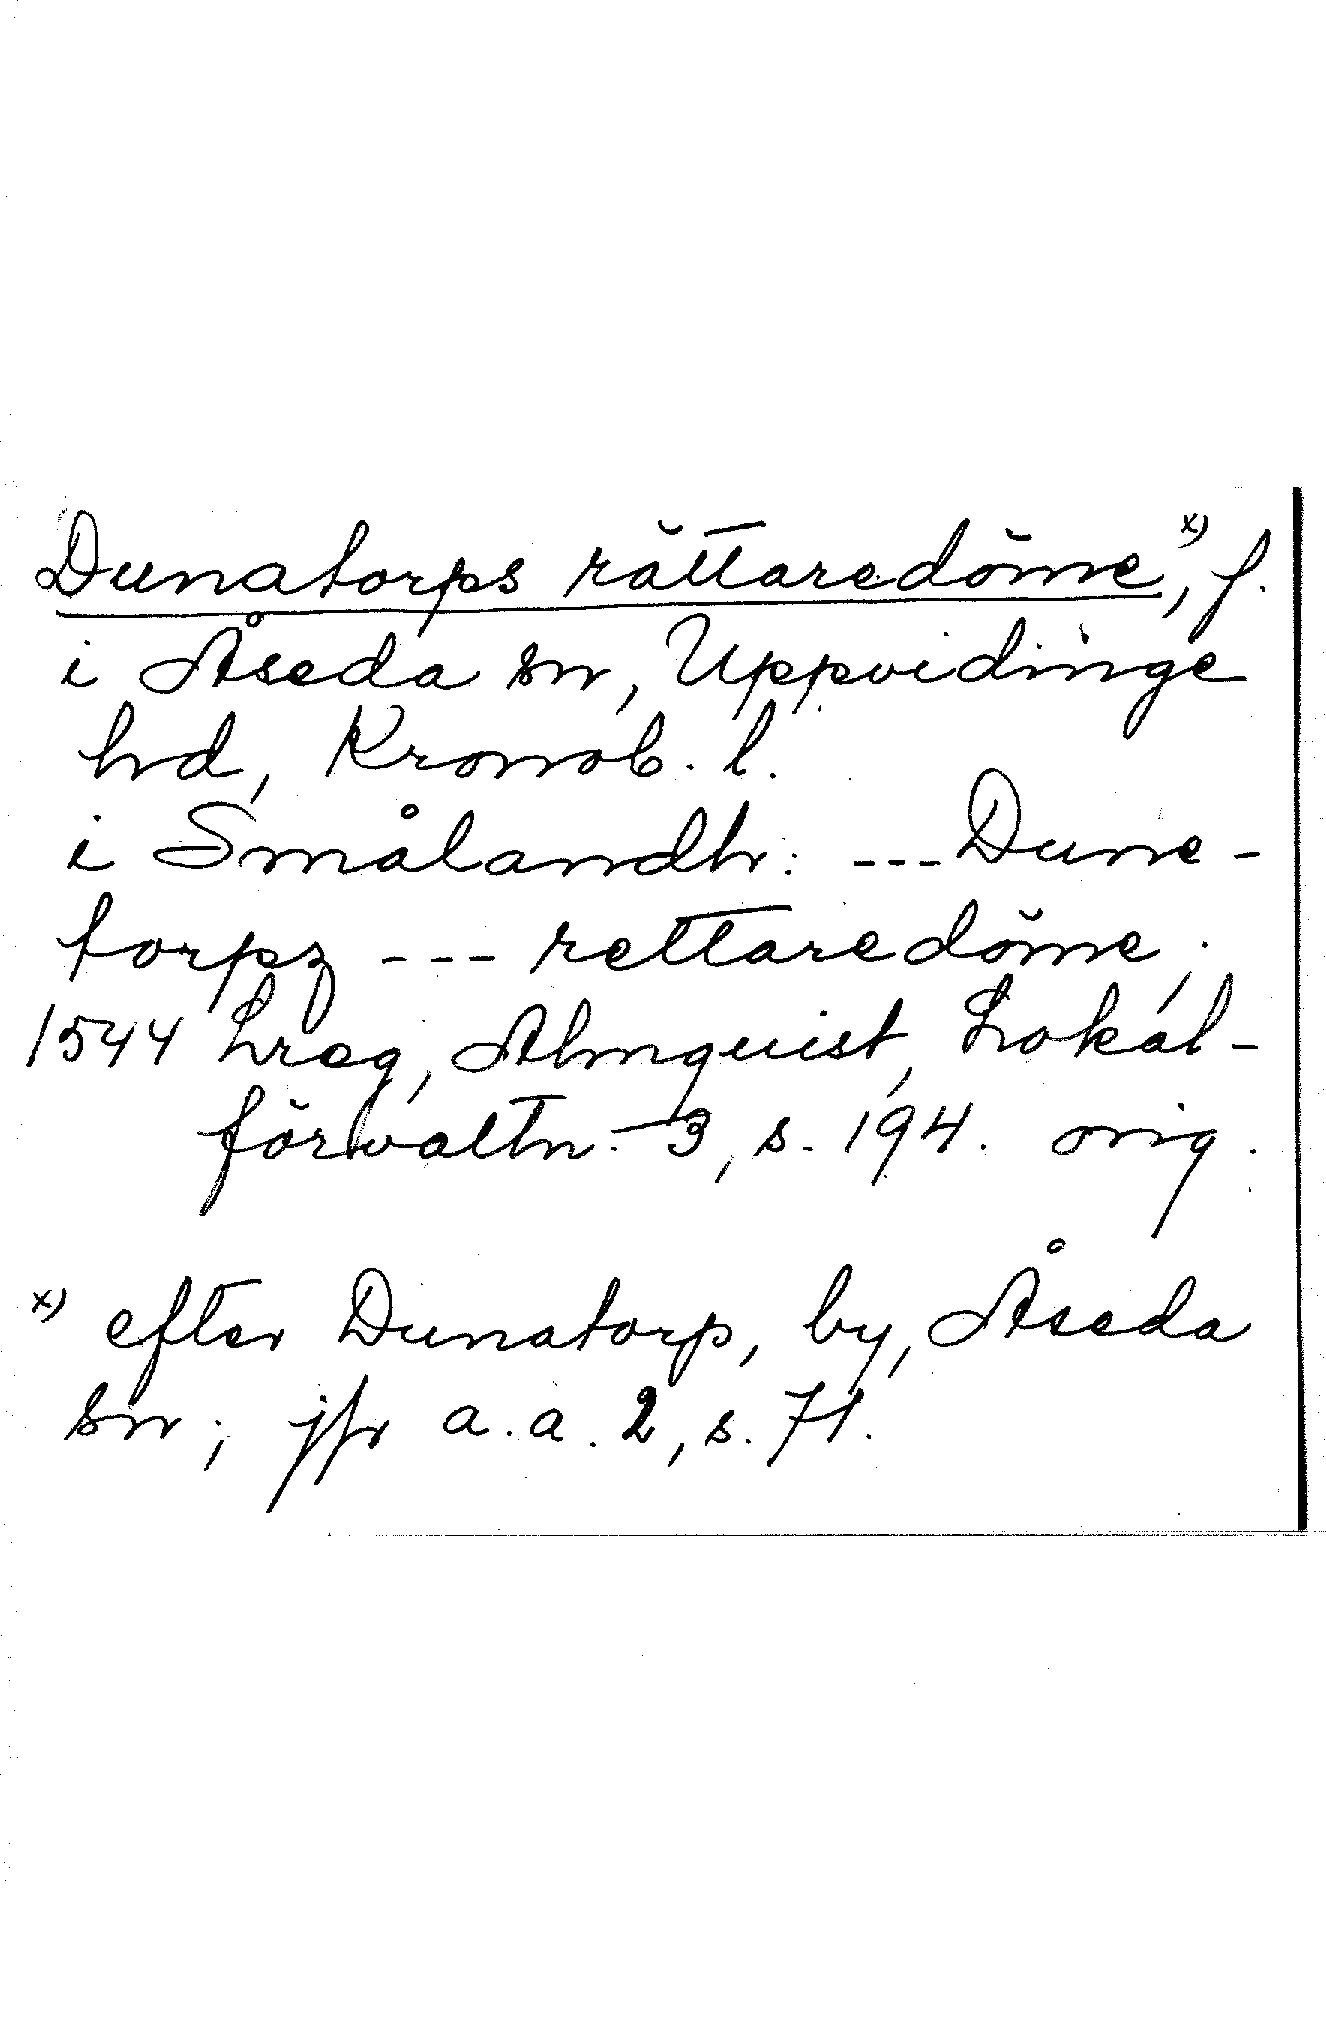 Dunatorps rättaredöme x), f.
i Åseda sn, Uppvidinge
hd, Kronob. l.
i Smålandh: --- Dune-
torpz --- rettaredöme,
1544 Lreg, Almquist, Lokal-
förvaltn. 3, s. 194. orig.
x) efter Dunatorp, by, Åseda
sn; jfr a.a. 2, s. 71.